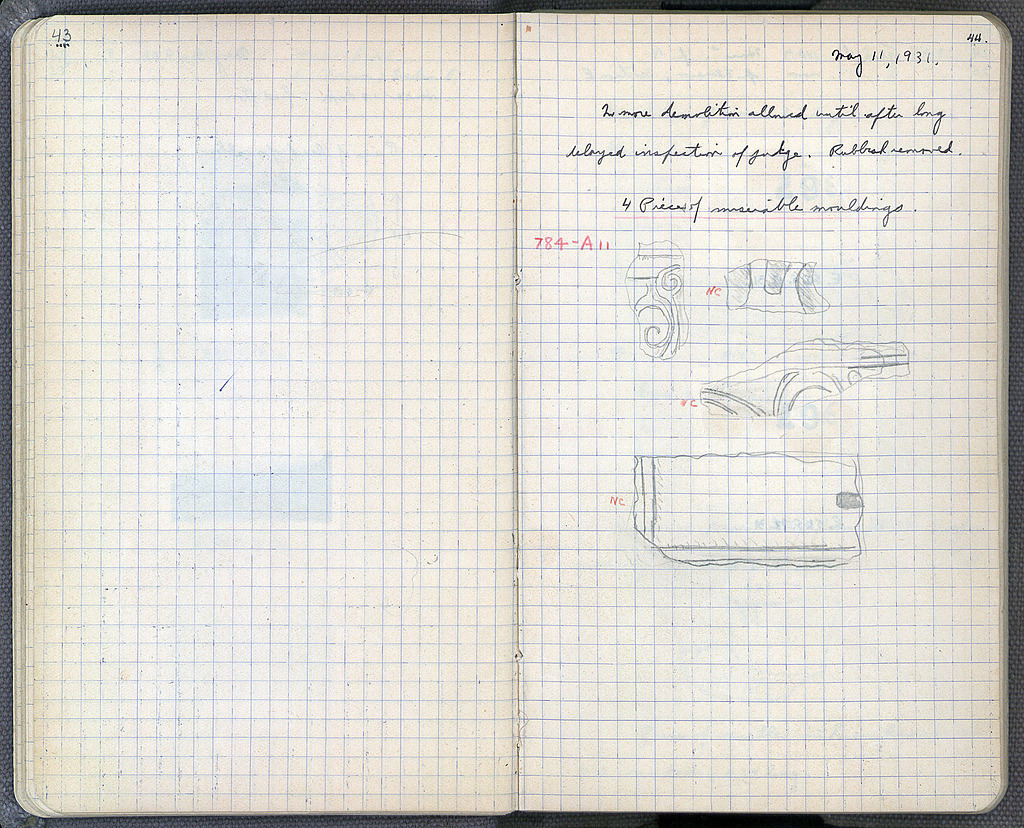 43
44.
May 11, 1931.
more demolition allowed until after long
delayed inspection of judge. Rubbish removed.
4 Pieces of miserable mouldings.
784-A11
NC
NC
NC